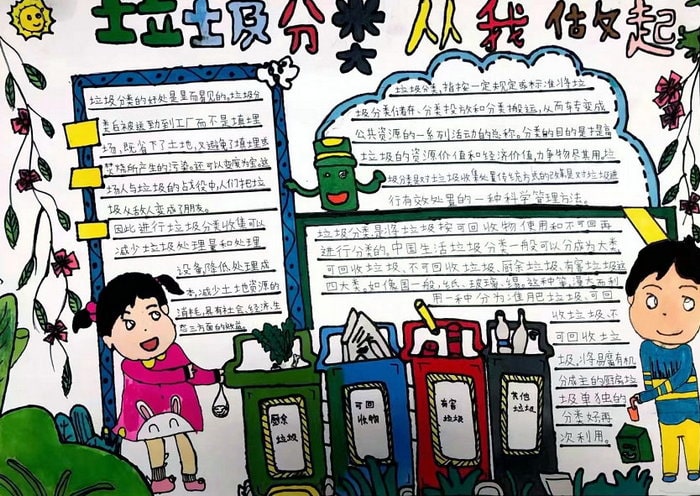 垃圾分类 从我做起
垃圾分类的好处是显而易见的。垃圾分
类后被运到工厂而不是填埋
场,既省下了土地,又避免了填埋或
焚烧所产生的污染。还可以变废为宝。这
场人与垃圾的战役中,人们把垃
圾从敌人变成了朋友。
因此进行垃圾分类收集可以
减少垃圾处理量和处理
设备,降低处理成
本,减少土地资源的
消耗,具有社会、经济、生
态三方面的效益。
垃圾分类,指按一定规定或标准将垃
圾分类储存、分类投放和分类搬运,从而转变成
公共资源的一系列活动的总称。分类的目的是提高
垃圾的资源价值和经济价值,力争物尽其用。垃
圾分类是对垃圾收集处置传统方式的改革,是对垃圾进
行有效处置的一种科学管理方法。
垃圾分类是将垃圾按可回收物使用和不可回再
进行分类的。中国生活垃圾分类一般可以分成为大类。
可回收垃圾、不可回收垃圾、厨余垃圾、有害垃圾这
四大类。如像国一般,纸、玻璃、
用一种分为准用把垃圾、可回
收垃圾、不
可回收垃
圾,将易腐有机
分成主的厨房垃
圾单独的
分类好,再
次利用。
厨余
垃圾
可回
收物
有害
垃圾
其他
垃圾